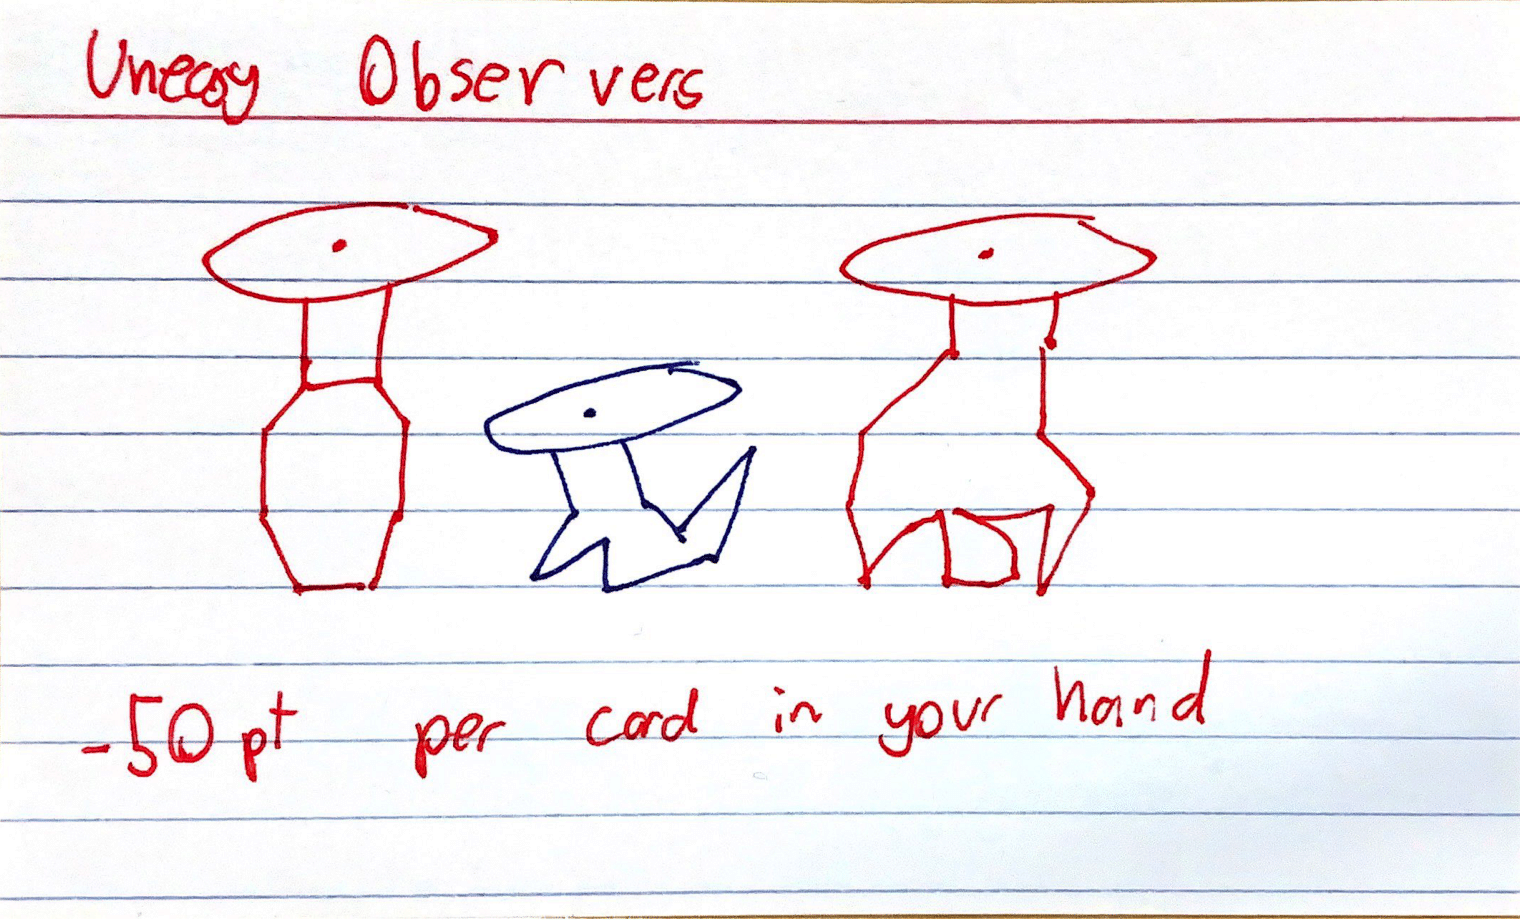 Uneasy Observers
-50 pt per card in your hand